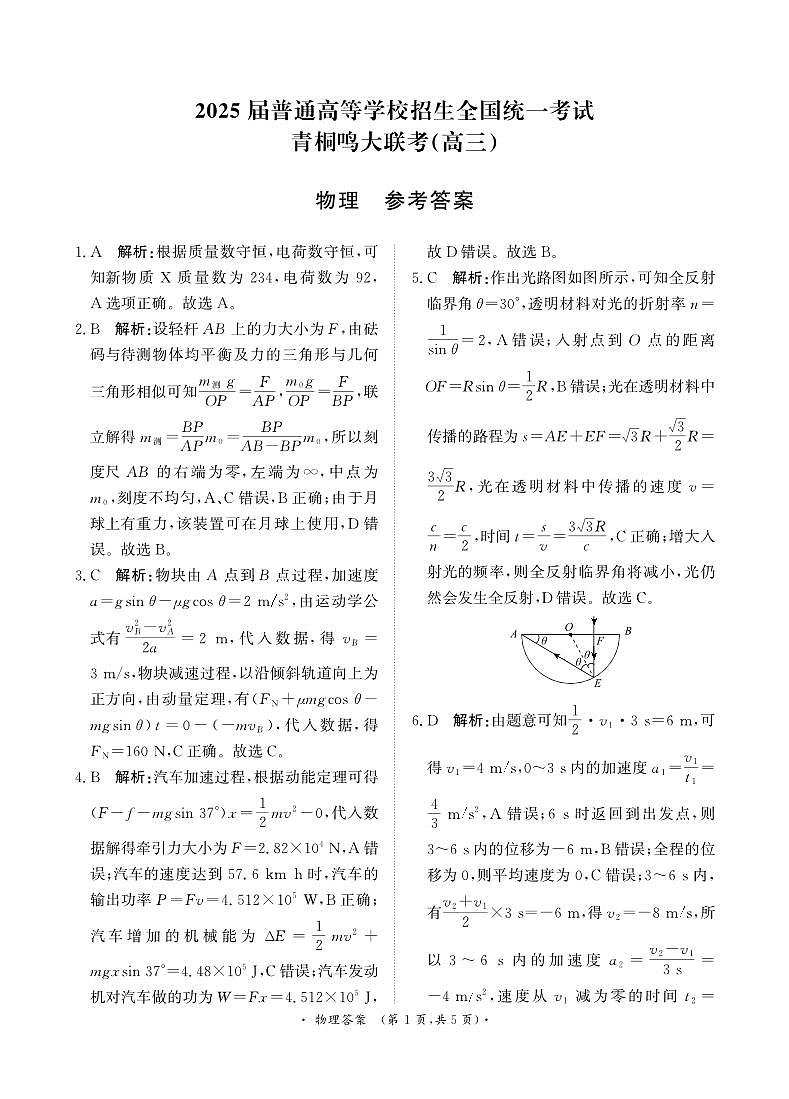 2025 届普通高等学校招生全国统一考试
青桐鸣大联考(高三)
物理 参考答案
1. A 解析:根据质量数守恒,电荷数守恒,可
知新物质 X 质量数为 234,电荷数为 92,
A 选项正确。故选 A。
2. B 解析:设轻杆 AB 上的力大小为 F,由砝
码与待测物体均平衡及力的三角形与几何
三角形相似可知 m测 g/OP = F/AP, m₀g/OP = F/BP,联
立解得 m测 = BP/AP m₀ = BP/(AB−BP) m₀,所以刻
度尺 AB 的右端为零,左端为∞,中点为
m₀,刻度不均匀,A、C 错误,B 正确;由于月
球上有重力,该装置可在月球上使用,D 错
误。故选 B。
3. C 解析:物块由 A 点到 B 点过程,加速度
a=gsin θ−μgcos θ=2 m/s²,由运动学公
式有 (v_B²−v_A²)/2a = 2 m,代入数据,得 v_B =
3 m/s,物块减速过程,以沿倾斜轨道向上为
正方向,由动量定理,有(F_N+μmgcos θ−
mgsin θ)t=0−(−mv_B),代入数据,得
F_N=160 N,C 正确。故选 C。
4. B 解析:汽车加速过程,根据动能定理可得
(F−f−mgsin 37°)x=1/2 mv²−0,代入数
据解得牵引力大小为 F=2.82×10⁴ N,A 错
误;汽车的速度达到 57.6 km h 时,汽车的
输出功率 P=Fv=4.512×10⁵ W,B 正确;
汽车增加的机械能为 ΔE = 1/2 mv² +
mgxsin 37°=4.48×10⁵ J,C 错误;汽车发动
机对汽车做的功为 W=Fx=4.512×10⁵ J,
故 D 错误。故选 B。
5. C 解析:作出光路图如图所示,可知全反射
临界角 θ=30°,透明材料对光的折射率 n=
1/sin θ=2,A 错误;入射点到 O 点的距离
OF=Rsin θ=1/2 R,B 错误;光在透明材料中
传播的路程为 s=AE+EF=√3R+√3/2 R=
3√3/2 R,光在透明材料中传播的速度 v=
c/n=c/2,时间 t=s/v=3√3R/c,C 正确;增大入
射光的频率,则全反射临界角将减小,光仍
然会发生全反射,D 错误。故选 C。
A θ O F B
θ θ
E
6. D 解析:由题意可知 1/2・v₁・3 s=6 m,可
得 v₁=4 m/s,0~3 s 内的加速度 a₁=v₁/t₁=
4/3 m/s²,A 错误;6 s 时返回到出发点,则
3~6 s 内的位移为−6 m,B 错误;全程的位
移为 0,则平均速度为 0,C 错误;3~6 s 内,
有 (v₂+v₁)/2×3 s=−6 m,得 v₂=−8 m/s,所
以 3~6 s 内的加速度 a₂=(v₂−v₁)/3 s=
−4 m/s²,速度从 v₁ 减为零的时间 t₂=
・物理答案 (第 1 页,共 5 页)・